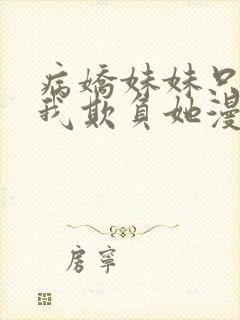 病嬌妹妹只
我欺負她漫
房寧